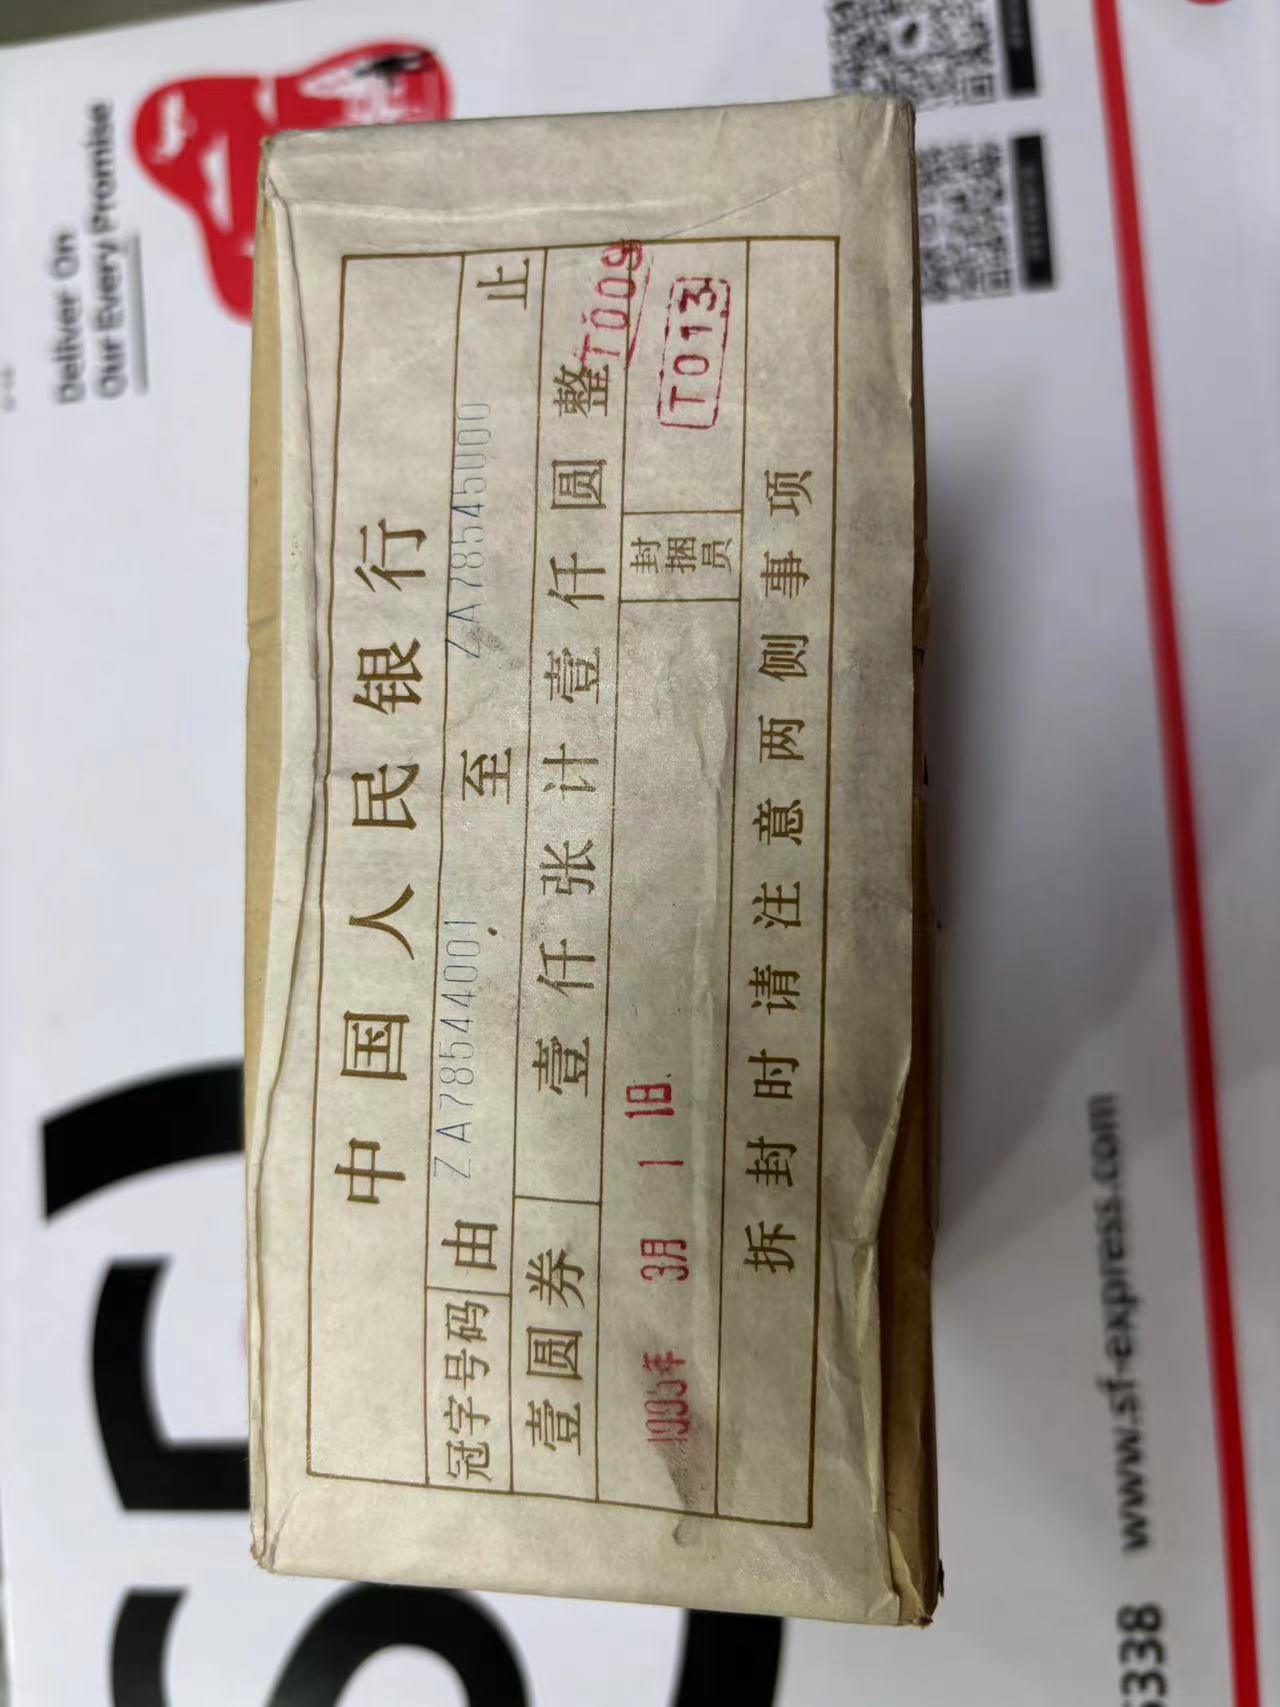 中国人民银行
冠字号码 由 ZA78544001 至 ZA78545000 止
壹圆券 壹仟张计壹仟圆整
T009
1995年 3月 1 1日 封捆员 T013
拆封时请注意两侧事项
Deliver On
Our Every Promise
338 www.sf-express.com